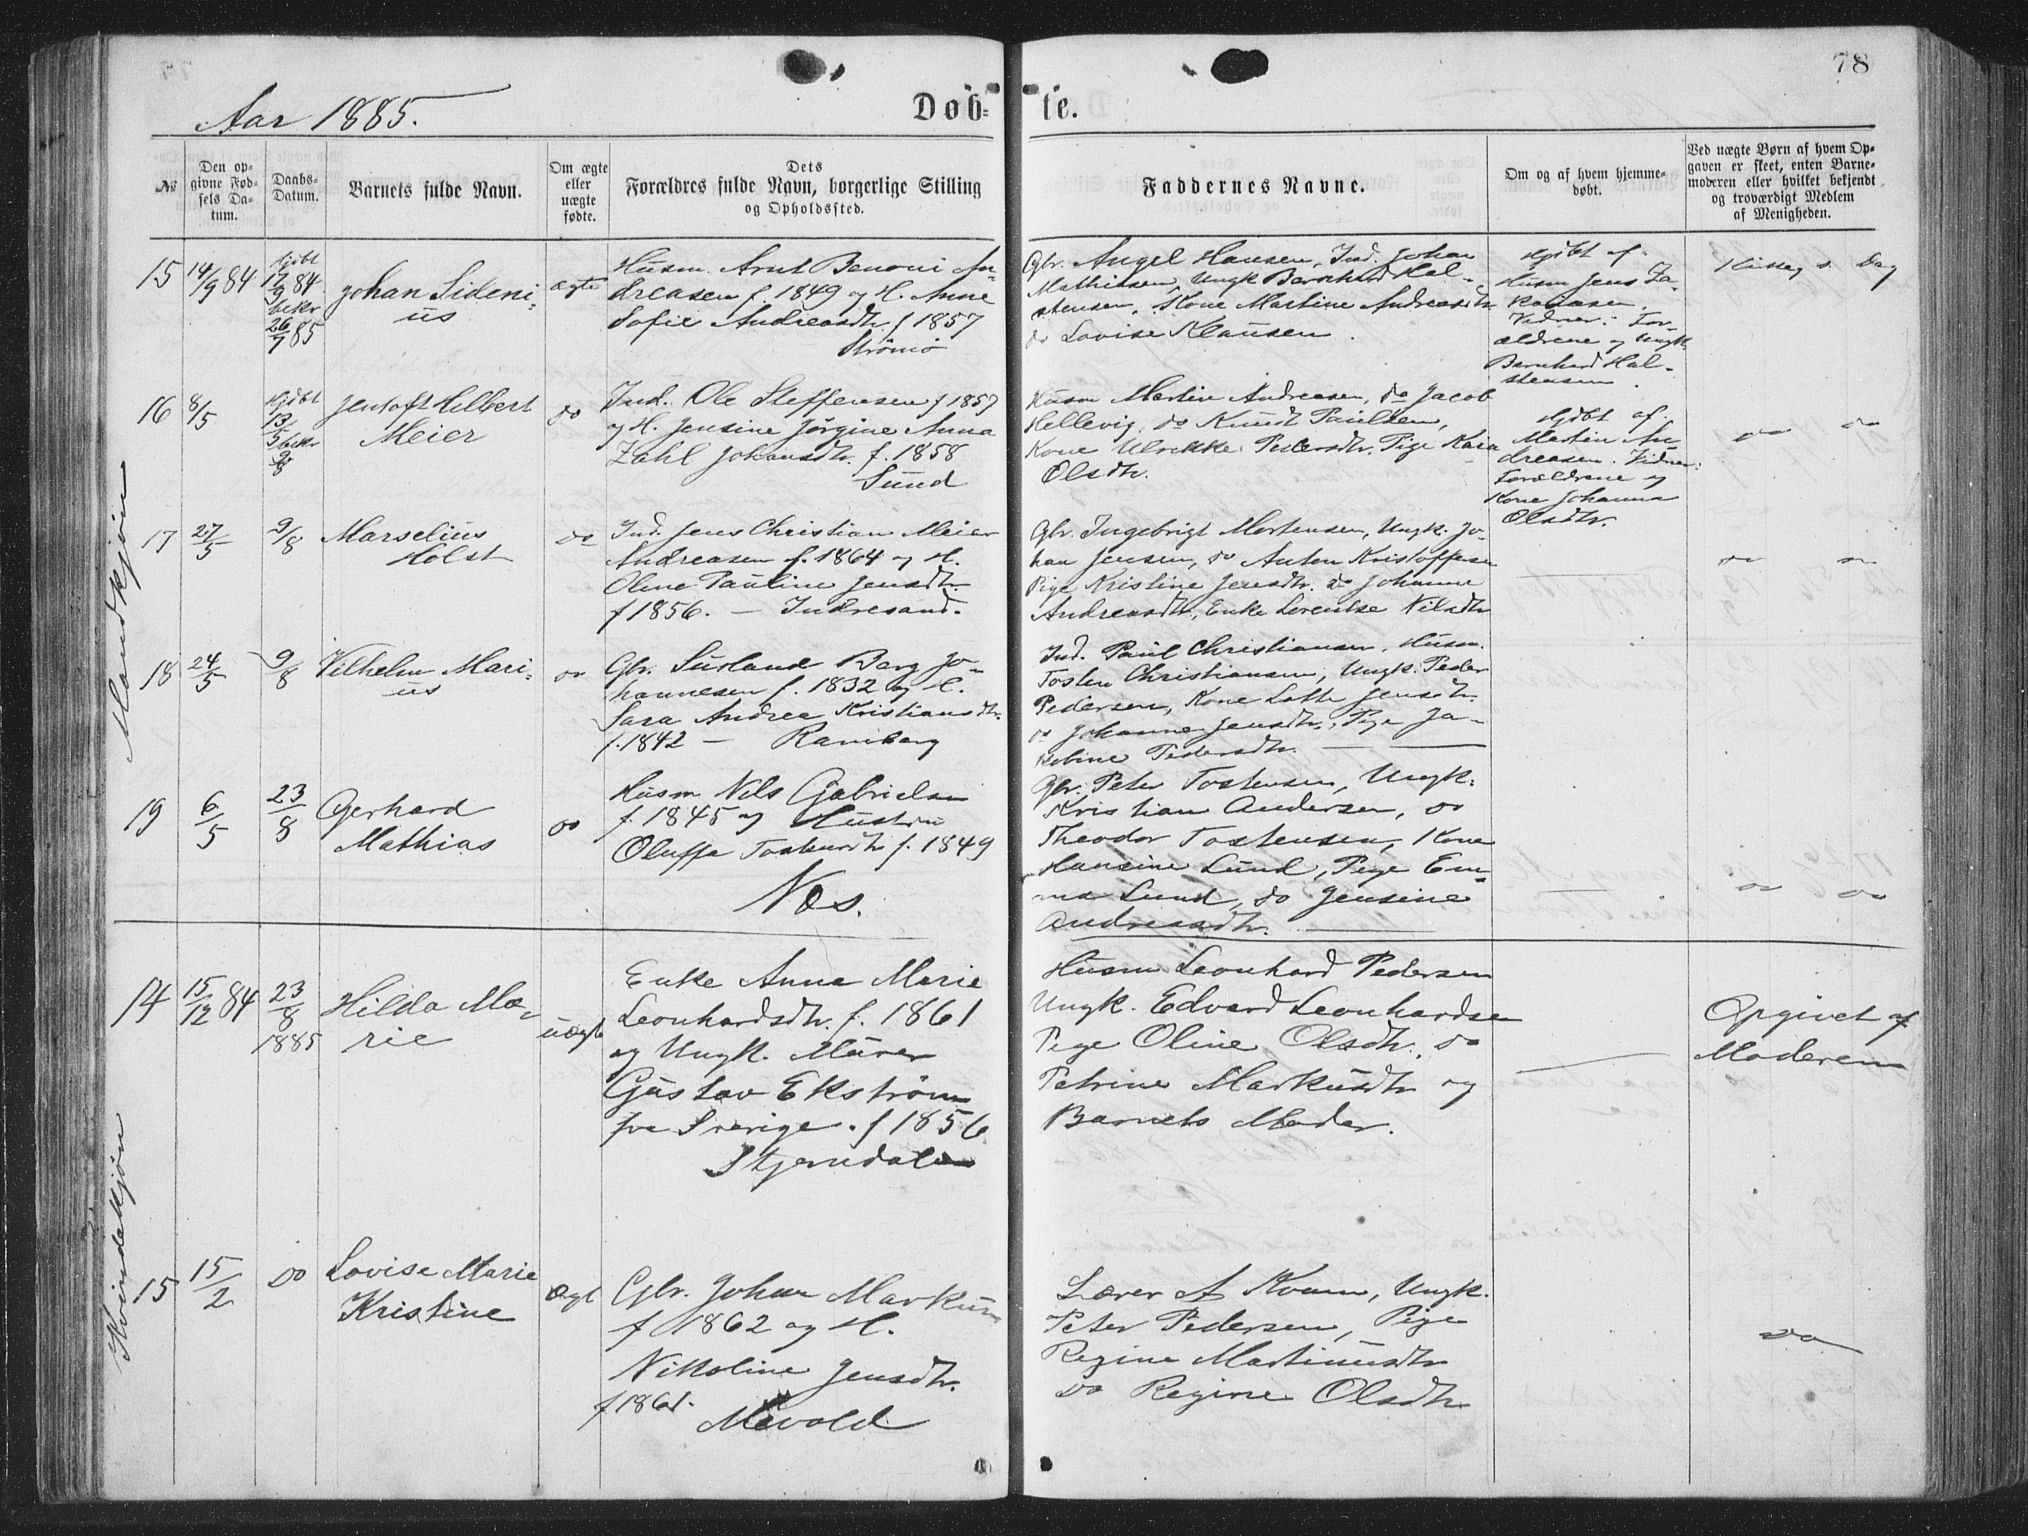 78
Aar 1885.
Døb-
te.
№
Den op-
givne Fød-
sels Da-
tum.
Daabs-
Datum.
Barnets fulde Navn.
Om ægte
eller
uægte
fødte.
Dets
Forældres fulde Navn, borgerlige Stilling
og Opholdssted.
Faddernes Navne.
Om og af hvem hjemme-
døbt.
Ved uægte Børn af hvem Op-
gaven er skeet, enten Barne-
moderen eller hvilket bekjendt
og troværdigt Medlem
af Menigheden.
Mandkjøn
15
14/9 84
Hjdbt
17/9 84
bekr
26/7 85
Johan Sideni-
us
ægte
Husm. Arnt Benoni An-
dreasen f. 1849 og H. Anne
Sofie Andreasdtr. f 1857
Strømø
Gbr. Angel Hansen, Ind. Johan
Mathisen, Ungk Bernhard Hal-
stensen, Kone Martine Andreasdtr
do Lovise Klausen.
Hjdbt af
Husm Jens Za-
kariasen.
Vidner: For-
ældrene og Ungk.
Bernhard Hal-
stensen.
16
8/5
Hjdbt
13/5 bekr
9/8
Jentoft Hilbert
Meier
do
Ind. Ole Steffensen f 1857
og H. Jensine Jørgine Anna
Zahl Johansdtr. f. 1858
Sund
Husm Martin Andreasen, do Jacob
Hellevig, do Knudt Paulsen,
Kone Ulrikke Pedersdtr. Pige Kaia
Olsdtr.
Hjdbt af
Martin An-
dreasen. Vidner:
Forældrene og
Kone Johanna
Olsdtr.
do do
17
27/5
9/8
Marselius
Holst
do
Ind. Jens Christian Meier
Andreasen f. 1864 og H.
Oline Pauline Jensdtr.
f 1856. — Indresand.
Gbr. Ingebrigt Mortensen, Ungk. Jo-
han Jensen, do Anton Kristoffersen
Pige Kristine Jensdtr. do Johanne
Andreasdtr., Enke Lorentse Nilsdtr
do
18
24/5
9/8
Vilhelm Mari-
us
do
Gbr. Surland Berg Jo-
hannesen f. 1832 og H.
Sara Andrea Kristiansdtr.
f. 1842 — Ramberg
Ind. Paul Christiansen, Husm.
Tosten Christiansen, Ungk. Peder
Pedersen, Kone Lotte Jensdtr.
do Johanne Jensdtr., Pige Ja-
kobine Pedersdtr.
19
6/5
23/8
Gerhard
Mathias
do
Husm Nils Gabrielsen
f. 1845 og Hustru
Oluffa Tostensdtr f. 1849
Næs.
Gbr. Peter Tostensen, Ungk.
Kristian Andersen, do
Theodor Tostensen, Kone
Hansine Lund, Pige Em-
ma Lund, do Jensine
Andreasdtr.
do do
Kvindekjøn
14
15/12 84
23/8
1885
Hilda Ma-
rie
uægte
Enke Anna Marie
Leonhardsdtr. f. 1861
og Ungk. Murer
Gustav Ekstrøm
fra Sverige. f 1856
Stjerndalen
Husm Leonhard Pedersen
Ungk. Edvard Leonhardsen
Pige Oline Olsdtr., do
Petrine Markusdtr og
Barnets Moder.
Opgivet af
Moderen
15
15/2
do
Lovise Marie
Kristine
ægt
Gbr. Johan Markus
f 1862 og H.
Nikoline Jensdtr.
f 1861.
Mævold
Lærer A Kvam, Ungk.
Peter Pedersen, Pige
Regine Martinusdtr
do Regine Olsdtr
do